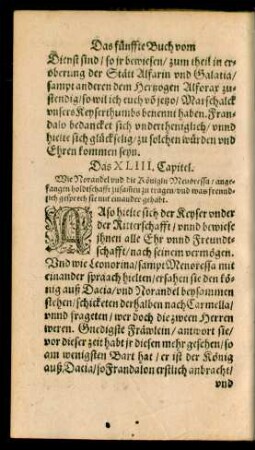 Das fünffte Buch vom
Dienst sind / so jr bewisen / zum theil in er-
oberung der Stätt Alfarin vnd Galatia /
sampt anderen dem Hertzogen Alforax zu-
stendig / so wil ich euch võ jetzo / Marschalck
vnsers Keyserthumbs benennt haben. Fran-
dalo bedancket sich vnderthenigklich / vnnd
hielte sich glückselig / zu solchen würden vnd
Ehren kommen seyn.
Das XLIII. Capitel.
Wie Norandel vnd die Königin Menoressa / ange-
fangen holdtschafft zusamen zu tragen / vnd was freund-
lich gespräch sie mit einander gehabt.
Also hielte sich der Keyser vnder
der Ritterschafft / vnnd bewiese
jhnen alle Ehr vnnd Freundt-
schafft / nach seinem vermögen.
Vnd wie Leonorina / sampt Menoressa mit
einander spraach hielten / ersahen sie den kö-
nig auß Dacia / vnd Norandel beysammen
stehen / schicketen derhalben nach Carmella /
vnnd frageten / wer doch die zween Herren
weren. Gnedigste Fräwlein / antwort sie /
vor dieser zeit habt jr diesen mehr gesehen / so
am wenigsten Bart hat / er ist der König
auß Dacia / so Frandalon erstlich anbracht /
vnd